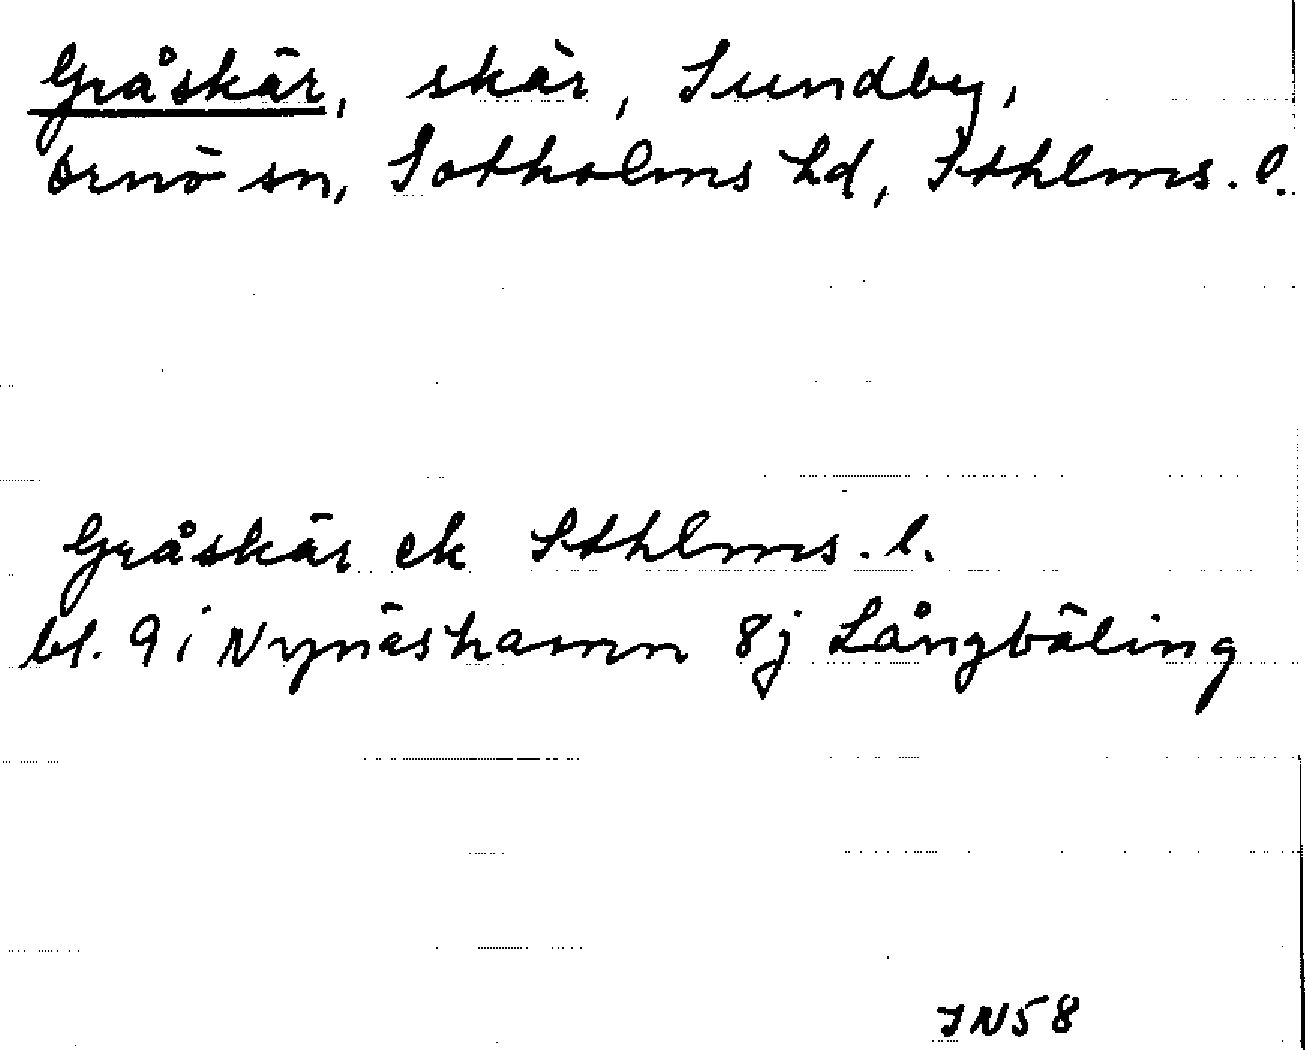 Gråskär, skär, Sundby,
Ornö sn, Sotholms hd, Sthlms. l.
Gråskär ek Sthlms. l.
bl. 9 i Nynäshamn 8j Långbäling
JN58